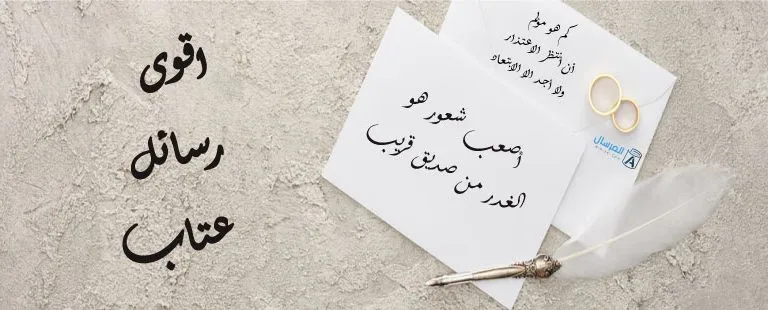 اقوى
رسائل
عتاب
كم هو مؤلم
أن أنتظر الاعتذار
ولا أجد الا الابتعاد
أصعب شعور هو
الغدر من صديق قريب
المرسال